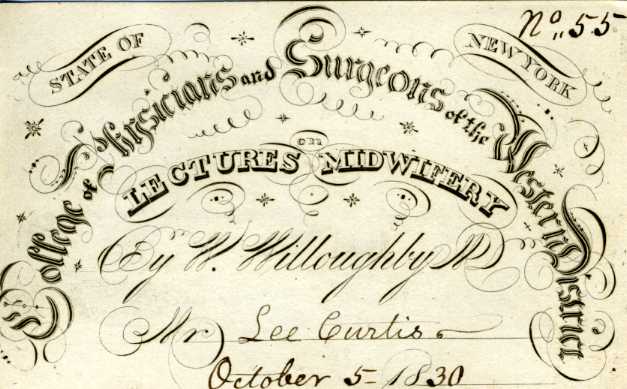 No. 55
STATE OF
NEW YORK
College of Physicians and Surgeons of the Western District
on
LECTURES MIDWIFERY
By W. Willoughby M
Mr Lee Curtis
October 5 - 1830